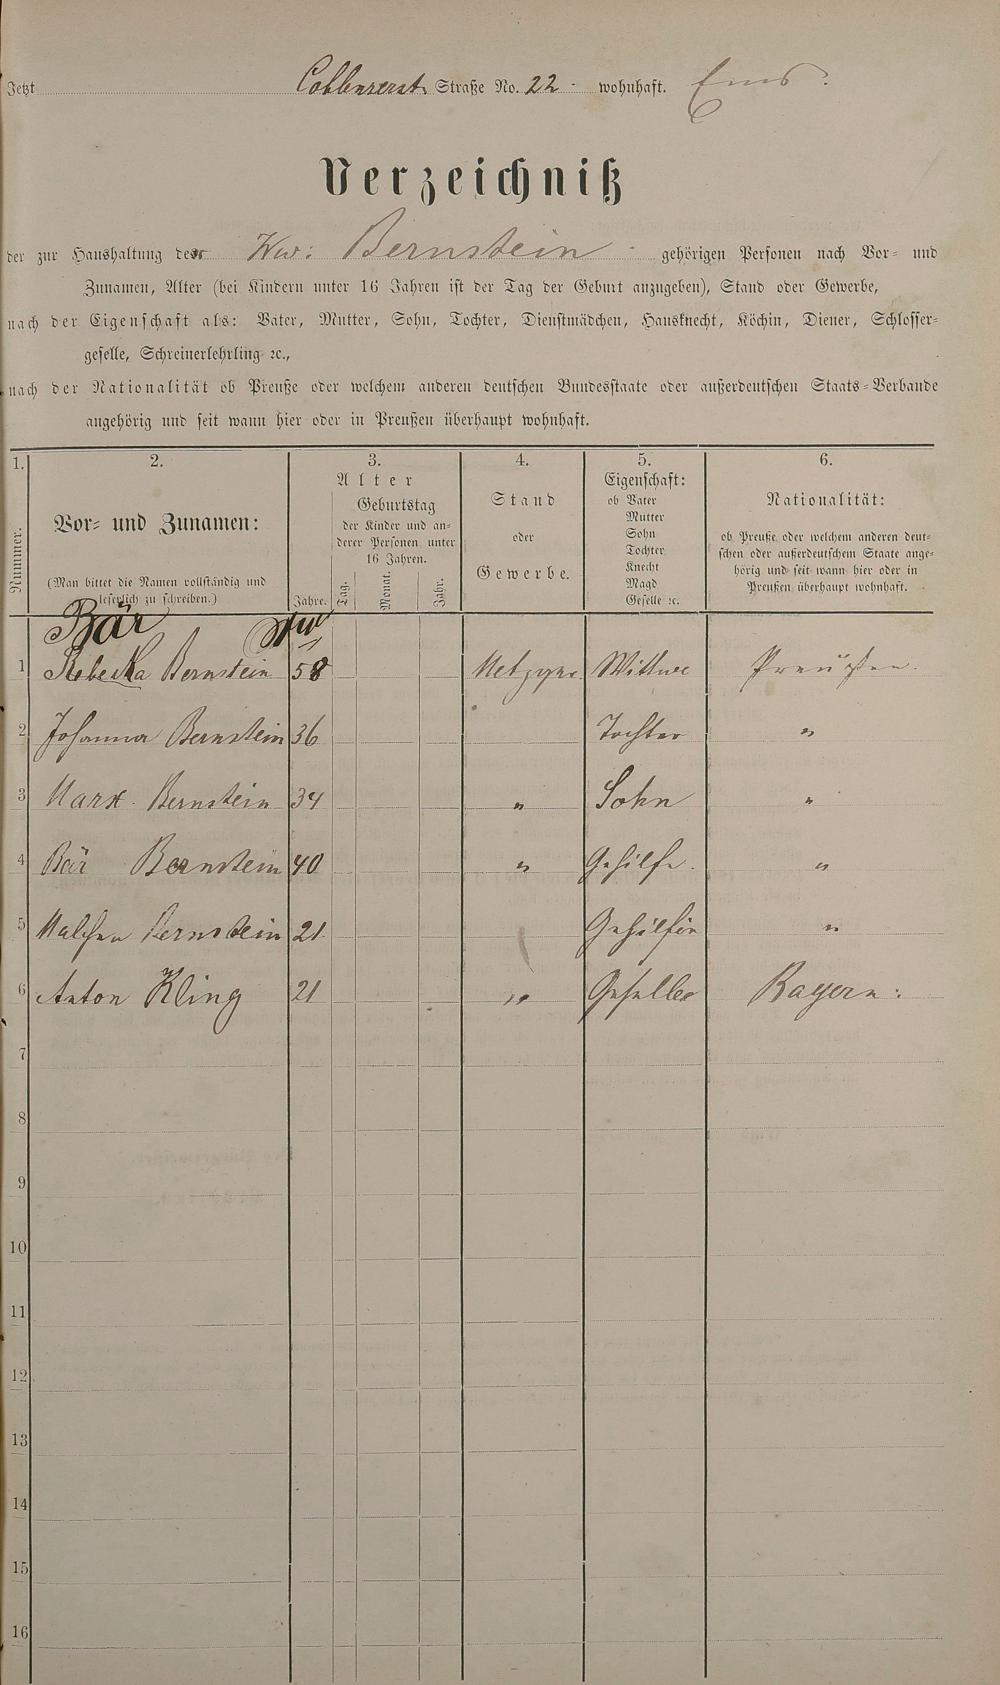 Jetzt Coblenzerst. Straße No. 22 wohnhaft. Ems.
Verzeichniß
der zur Haushaltung der Ww: Bernstein gehörigen Personen nach Vor- und
Zunamen, Alter (bei Kindern unter 16 Jahren ist der Tag der Geburt anzugeben), Stand oder Gewerbe,
nach der Eigenschaft als: Vater, Mutter, Sohn, Tochter, Dienstmädchen, Hausknecht, Köchin, Diener, Schlosser-
geselle, Schreinerlehrling ꝛc.,
nach der Nationalität ob Preuße oder welchem anderen deutschen Bundesstaate oder außerdeutschen Staats-Verbande
angehörig und seit wann hier oder in Preußen überhaupt wohnhaft.
1. 2. 3. 4. 5. 6.
Nummer.
Vor- und Zunamen:
(Man bittet die Namen vollständig und
leserlich zu schreiben.)
Alter
Jahre.
Geburtstag
der Kinder und an-
derer Personen unter
16 Jahren.
Tag. Monat. Jahr.
Stand
oder
Gewerbe.
Eigenschaft:
ob Vater
Mutter
Sohn
Tochter
Knecht
Magd
Geselle ꝛc.
Nationalität:
ob Preuße oder welchem anderen deut-
schen oder außerdeutschem Staate ange-
hörig und seit wann hier oder in
Preußen überhaupt wohnhaft.
Bär
1 Rebecka Bernstein 58 Metzger Wittwe Preußen.
2 Johanna Bernstein 36 Tochter "
3 Marx Bernstein 34 " Sohn "
4 Bär Bernstein 40 " Gehilfe "
5 Malchen Bernstein 21 Gehilfin "
6 Anton Kling 21 " Geselle Bayern.
7
8
9
10
11
12
13
14
15
16